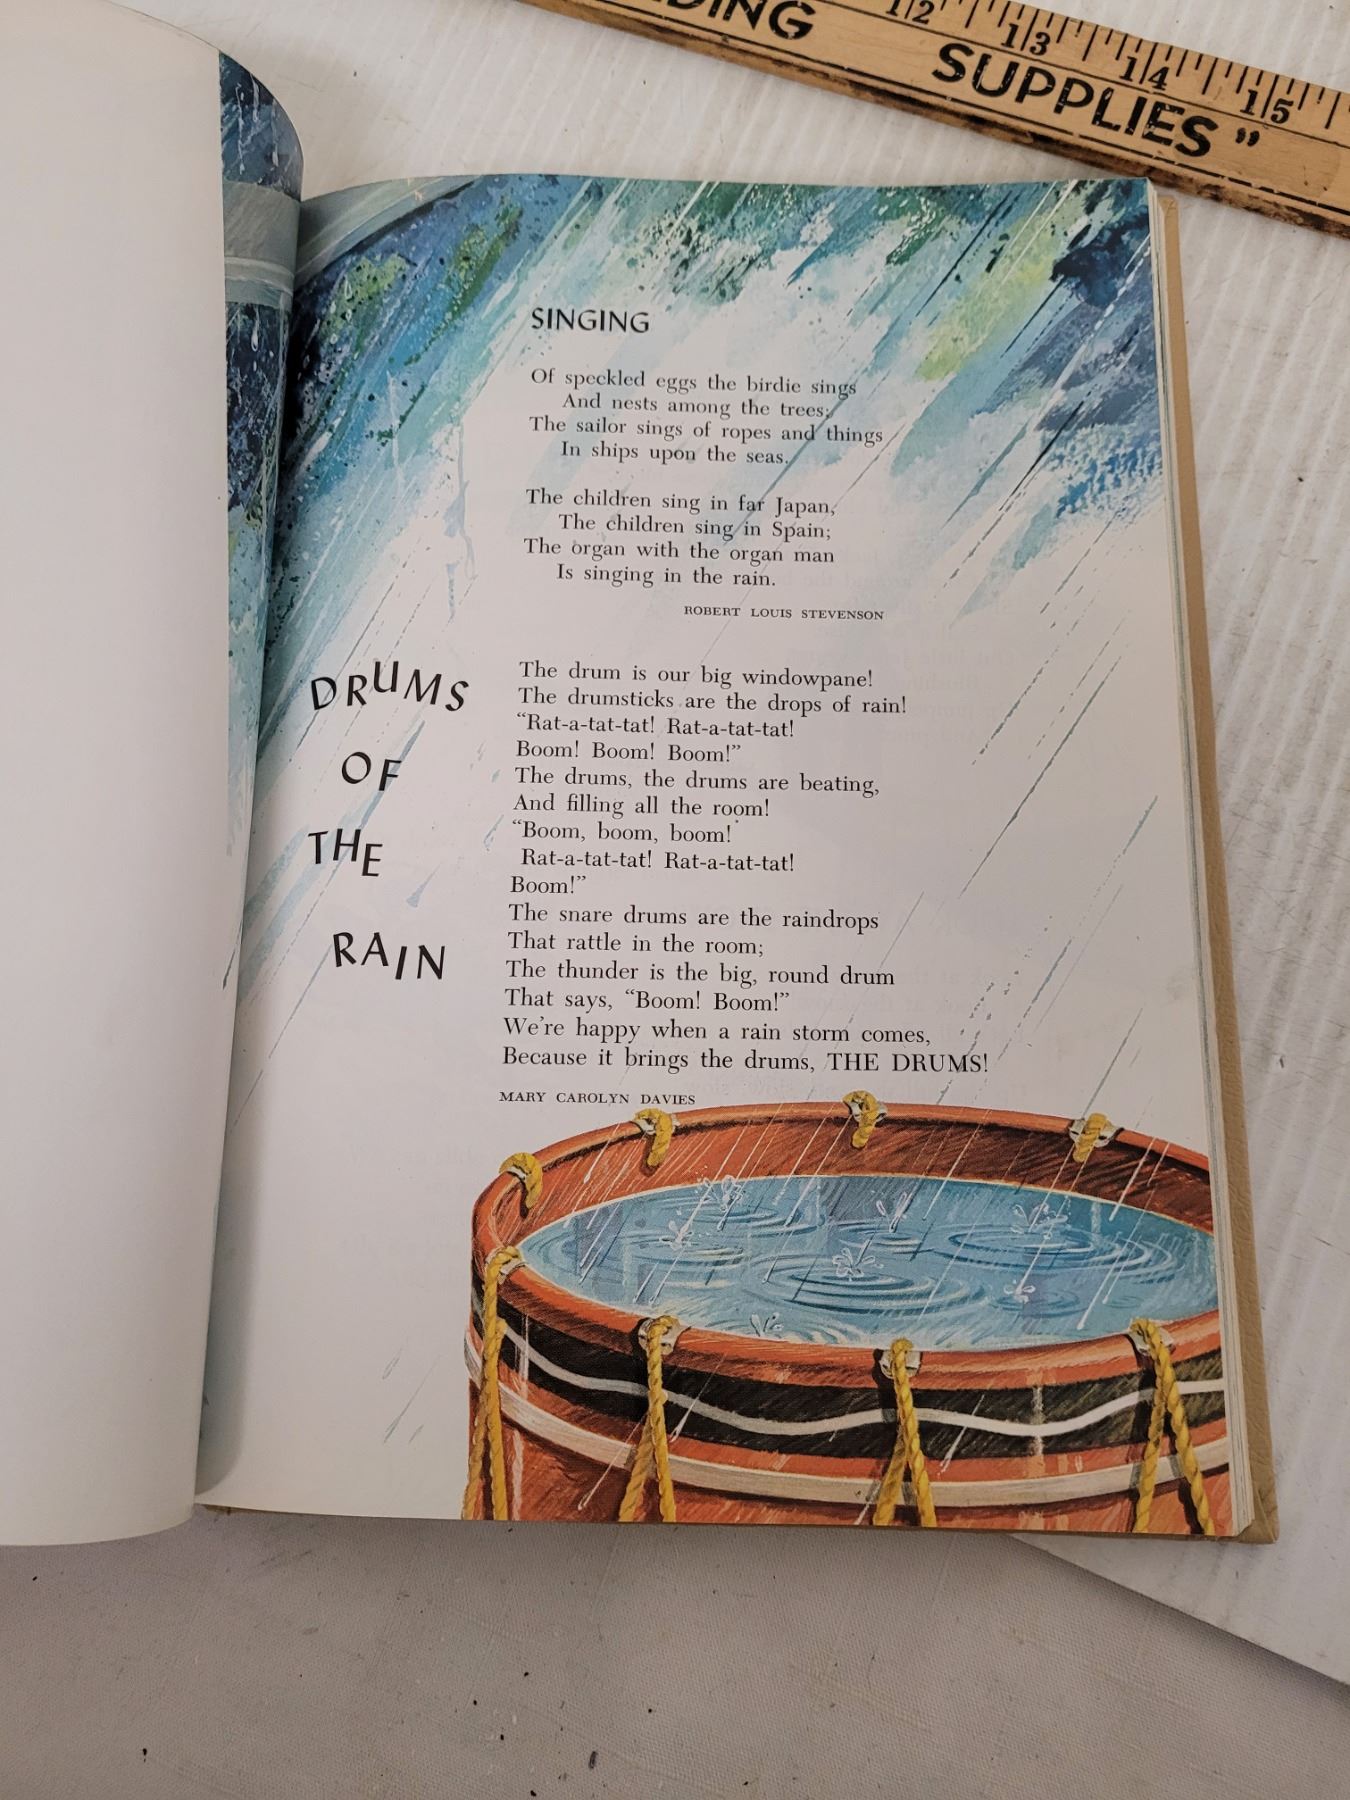 12 13 14 15
SUPPLIES"
SINGING
Of speckled eggs the birdie sings
And nests among the trees;
The sailor sings of ropes and things
In ships upon the seas.
The children sing in far Japan,
The children sing in Spain;
The organ with the organ man
Is singing in the rain.
ROBERT LOUIS STEVENSON
DRUMS
OF
THE
RAIN
The drum is our big windowpane!
The drumsticks are the drops of rain!
“Rat-a-tat-tat! Rat-a-tat-tat!
Boom! Boom! Boom!”
The drums, the drums are beating,
And filling all the room!
“Boom, boom, boom!
Rat-a-tat-tat! Rat-a-tat-tat!
Boom!”
The snare drums are the raindrops
That rattle in the room;
The thunder is the big, round drum
That says, “Boom! Boom!”
We're happy when a rain storm comes,
Because it brings the drums, THE DRUMS!
MARY CAROLYN DAVIES